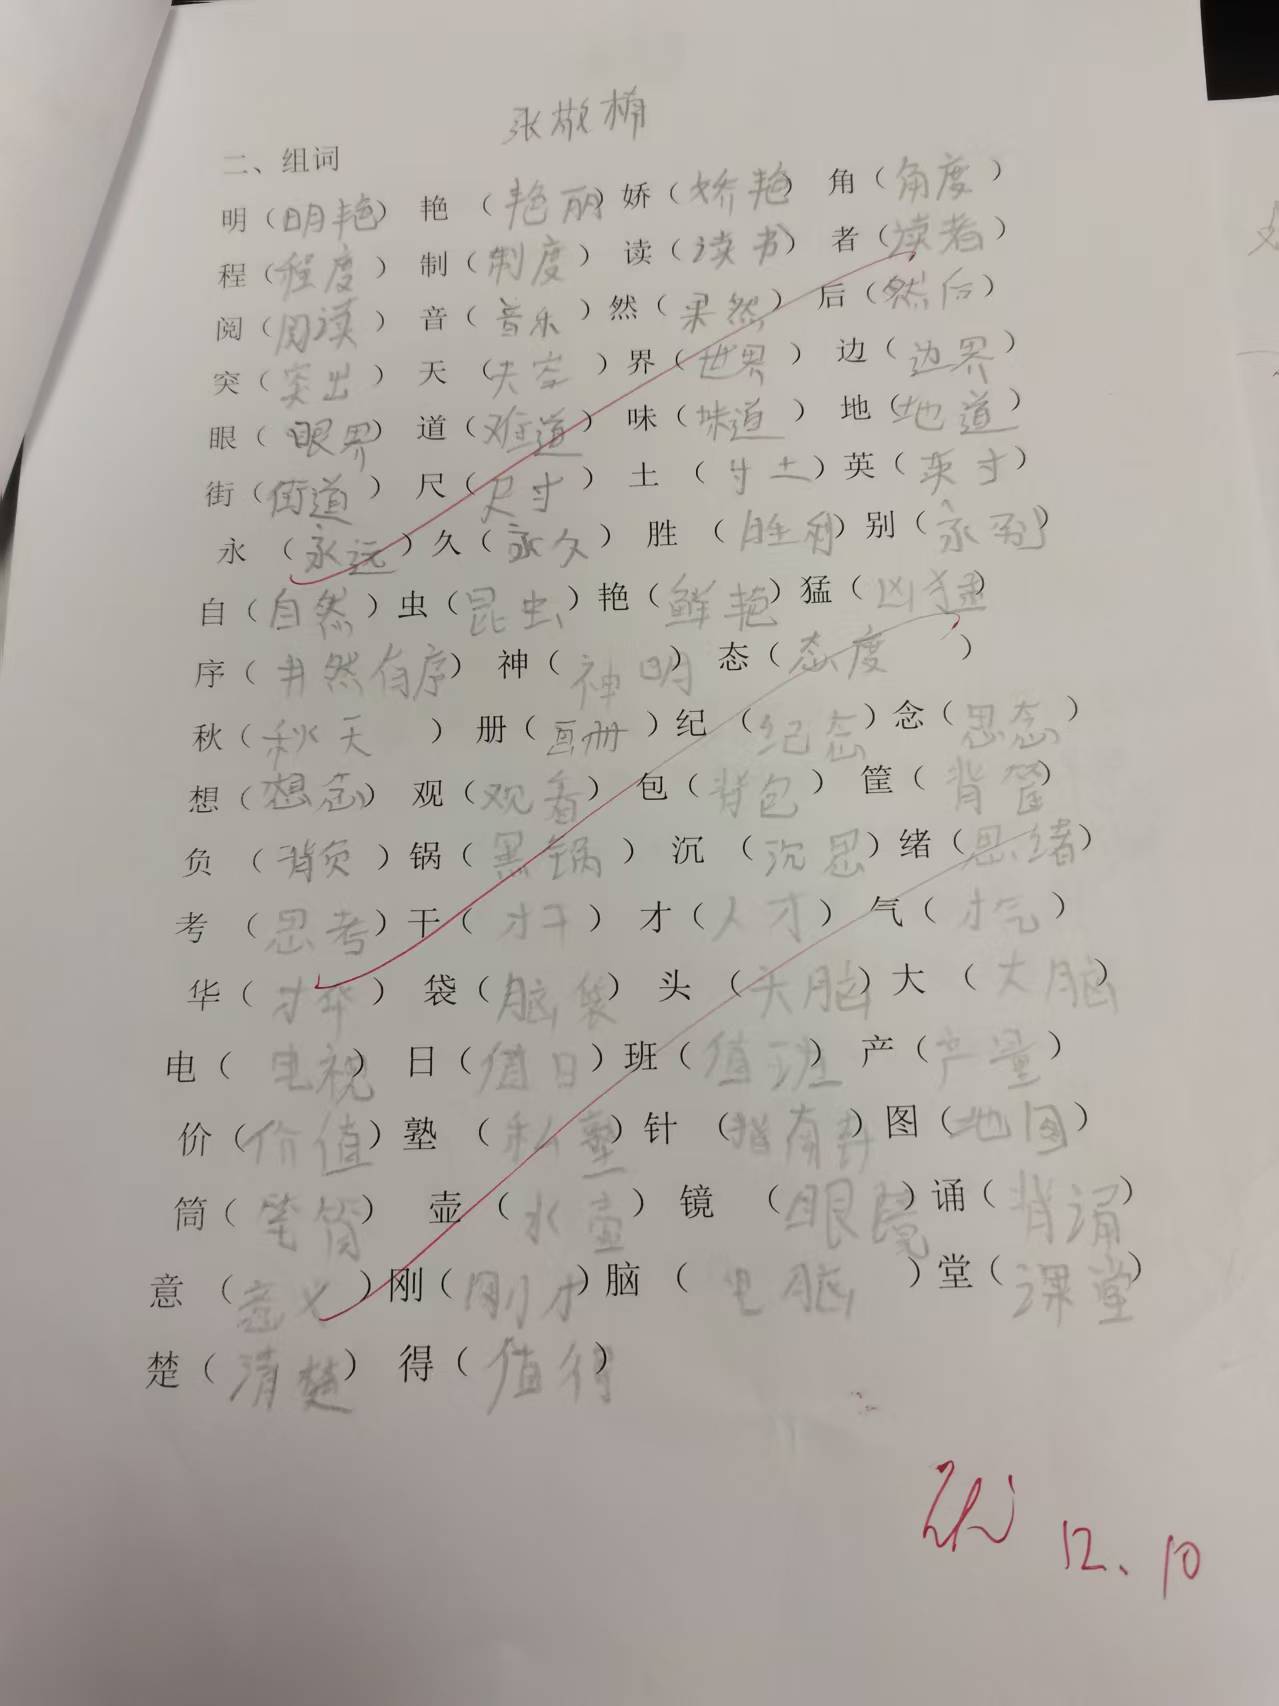 张敬楠
二、组词
明（明艳） 艳（艳丽） 娇（娇艳） 角（角度）
程（程度） 制（制度） 读（读书） 者（读者）
阅（阅读） 音（音乐） 然（果然） 后（然后）
突（突出） 天（天空） 界（世界） 边（边界）
眼（眼界） 道（难道） 味（味道） 地（地道）
街（街道） 尺（尺寸） 土（寸土） 英（英寸）
永（永远） 久（永久） 胜（胜利） 别（永别）
自（自然） 虫（昆虫） 艳（鲜艳） 猛（凶猛）
序（井然有序） 神（神明） 态（态度）
秋（秋天） 册（画册） 纪（纪念） 念（思念）
想（想念） 观（观看） 包（背包） 筐（背筐）
负（背负） 锅（黑锅） 沉（沉思） 绪（思绪）
考（思考） 干（才干） 才（人才） 气（才气）
华（才华） 袋（脑袋） 头（头脑） 大（大脑）
电（电视） 日（值日） 班（值班） 产（产量）
价（价值） 塾（私塾） 针（指南针） 图（地图）
筒（笔筒） 壶（水壶） 镜（眼镜） 诵（背诵）
意（意义） 刚（刚才） 脑（电脑） 堂（课堂）
楚（清楚） 得（值得）
12.10